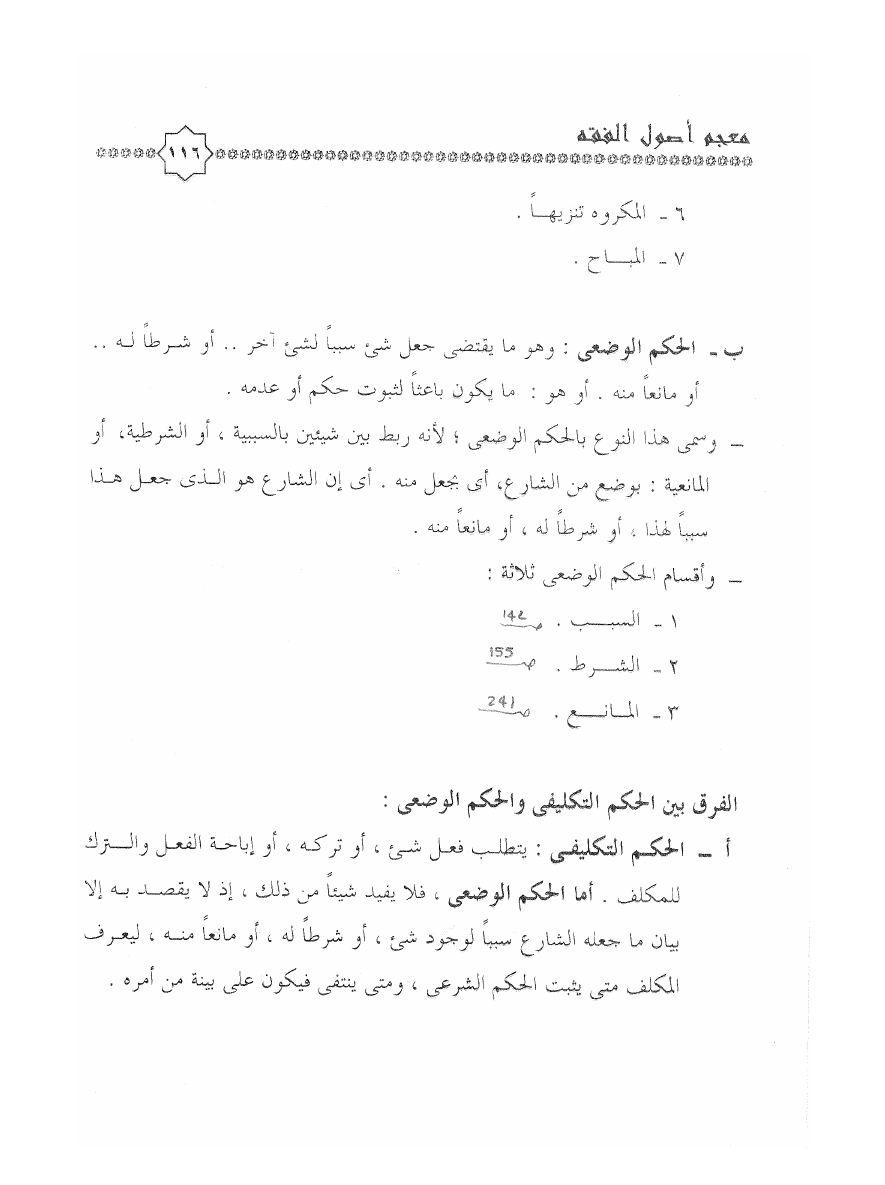 معجم أصول الفقه
١١٦
٦ – المكروه تنزيهـاً .
٧ – المبـــاح .
ب – الحكم الوضعى : وهو ما يقتضى جعل شئ سبباً لشئ آخر .. أو شـرطاً لـه ..
أو مانعاً منه . أو هو : ما يكون باعثاً لثبوت حكم أو عدمه .
– وسمى هذا النوع بالحكم الوضعى ؛ لأنه ربط بين شيئين بالسببية ، أو الشرطية، أو
المانعية : بوضع من الشارع، أى بجعل منه . أى إن الشارع هو الـذى جعـل هـذا
سبباً لهذا ، أو شرطاً له ، أو مانعاً منه .
– وأقسام الحكم الوضعى ثلاثة :
١ – السبـــب . ص 142
٢ – الشـــرط . ص 155
٣ – المـانـــع . ص 241
الفرق بين الحكم التكليفى والحكم الوضعى :
أ – الحكـم التكليفـى : يتطلـب فعـل شـئ ، أو تركـه ، أو إباحـة الفعـل والـــترك
للمكلف . أما الحكم الوضعى ، فلا يفيد شيئاً من ذلك ، إذ لا يقصـد بـه إلا
بيان ما جعله الشارع سبباً لوجود شئ ، أو شرطاً له ، أو مانعاً منـه ، ليعـرف
المكلف متى يثبت الحكم الشرعى ، ومتى ينتفى فيكون على بينة من أمره .